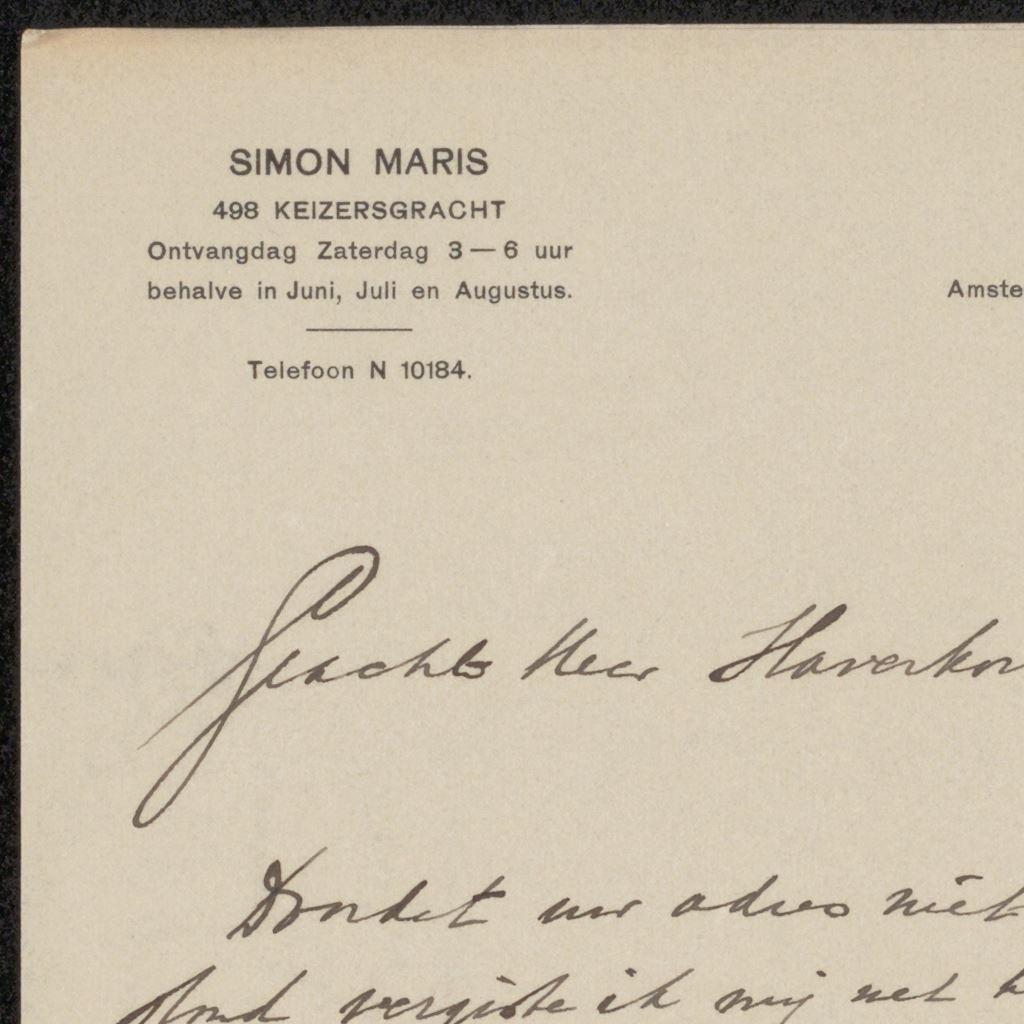 SIMON MARIS
498 KEIZERSGRACHT
Ontvangdag Zaterdag 3 — 6 uur
behalve in Juni, Juli en Augustus.
Amste
Telefoon N 10184.
Geachte Heer Haverkor
Doordat uw adres niet
stond vergiste ik mij met